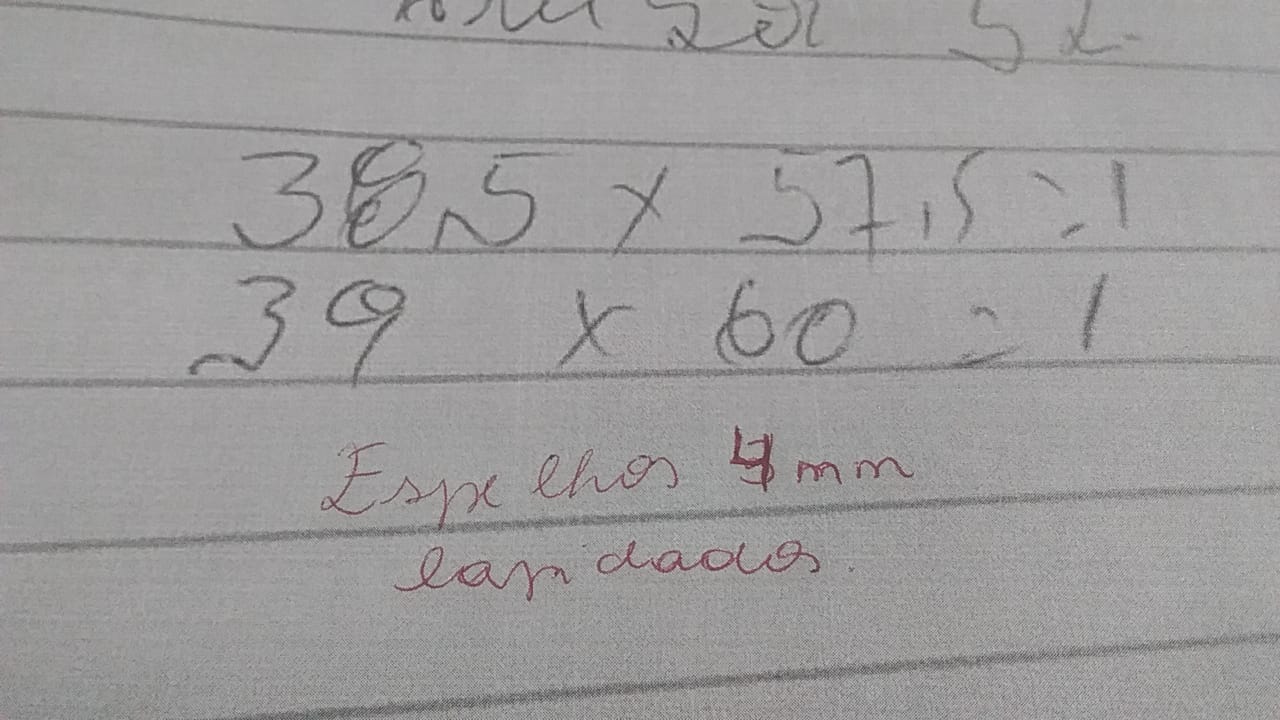 38,5 x 57,5 = 1
39 x 60 = 1
Espelhos 4mm
lapidados.